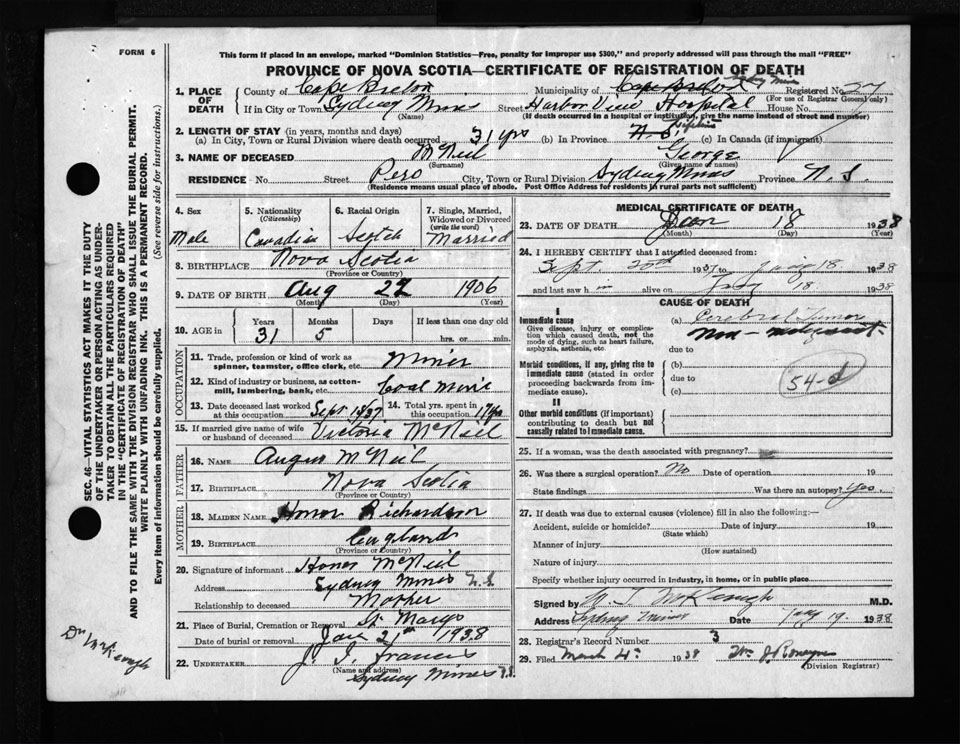 FORM 6
This form if placed in an envelope, marked "Dominion Statistics—Free, penalty for improper use $300," and properly addressed will pass through the mail "FREE"
PROVINCE OF NOVA SCOTIA—CERTIFICATE OF REGISTRATION OF DEATH
1. PLACE OF DEATH County of Cape Breton Municipality of Cape Breton Sydney Mines Registered No. 27
(For use of Registrar General only)
If in City or Town Sydney Mines Street Harbor View Hospital House No.
(Name) (If death occurred in a hospital or institution, give the name instead of street and number)
2. LENGTH OF STAY (in years, months and days)
(a) In City, Town or Rural Division where death occurred 31 yrs (b) In Province N. S. lifetime (c) In Canada (if immigrant)
3. NAME OF DECEASED McNeil George
(Surname) (Given name or names)
RESIDENCE - No. Street Pero City, Town or Rural Division Sydney Mines Province N. S.
(Residence means usual place of abode. Post Office Address for residents in rural parts not sufficient)
4. Sex Male
5. Nationality (Citizenship) Canadian
6. Racial Origin Scotch
7. Single, Married, Widowed or Divorced (write the word) Married
8. BIRTHPLACE Nova Scotia
(Province or Country)
9. DATE OF BIRTH Aug 22 1906
(Month) (Day) (Year)
10. AGE in Years Months Days If less than one day old
31 5 hrs. or min.
OCCUPATION
11. Trade, profession or kind of work as spinner, teamster, office clerk, etc. Miner
12. Kind of industry or business, as cotton-mill, lumbering, bank, etc. Coal Mine
13. Date deceased last worked at this occupation Sept 15/37 14. Total yrs. spent in this occupation 17 yrs
15. If married give name of wife or husband of deceased Victoria McNeil
FATHER
16. NAME Angus McNeil
17. BIRTHPLACE Nova Scotia
(Province or Country)
MOTHER
18. MAIDEN NAME Honor Richardson
19. BIRTHPLACE England
(Province or Country)
20. Signature of informant Honor McNeil
Address Sydney Mines N. S.
Relationship to deceased Mother
21. Place of Burial, Cremation or Removal St. Marys
Date of burial or removal Jan 21st 1938
22. UNDERTAKER J. J. Francis
(Name and address)
Sydney Mines N. S.
MEDICAL CERTIFICATE OF DEATH
23. DATE OF DEATH Jan 18 1938
(Month) (Day) (Year)
24. I HEREBY CERTIFY that I attended deceased from:
Sept 1937 to Jany 18 1938
and last saw h m alive on Jany 18 1938
CAUSE OF DEATH
I
Immediate cause (a) Cerebral Tumor
Give disease, injury or complication which caused death, not the mode of dying, such as heart failure, asphyxia, asthenia, etc.
Non-malignant.
due to
Morbid conditions, if any, giving rise to immediate cause (stated in order proceeding backwards from immediate cause).
(b)
due to 54-d
(c)
II
Other morbid conditions (if important) contributing to death but not causally related to immediate cause.
25. If a woman, was the death associated with pregnancy?
26. Was there a surgical operation? No Date of operation 19
State findings Was there an autopsy? Yes.
27. If death was due to external causes (violence) fill in also the following:—
Accident, suicide or homicide? Date of injury 19
(State which)
Manner of injury
(How sustained)
Nature of injury
Specify whether injury occurred in industry, in home, or in public place
Signed by McKeough M.D.
Address Sydney Mines Date Jany 19. 1938
28. Registrar's Record Number 3
29. Filed March 4th 1938 Wm J.
(Division Registrar)
SEC. 46—VITAL STATISTICS ACT MAKES IT THE DUTY
OF THE UNDERTAKER OR PERSON ACTING AS UNDER-
TAKER TO OBTAIN ALL THE PARTICULARS REQUIRED
IN THE "CERTIFICATE OF REGISTRATION OF DEATH"
AND TO FILE THE SAME WITH THE DIVISION REGISTRAR WHO SHALL ISSUE THE BURIAL PERMIT.
WRITE PLAINLY WITH UNFADING INK. THIS IS A PERMANENT RECORD.
Every item of information should be carefully supplied. (See reverse side for instructions.)
Dr McKeough